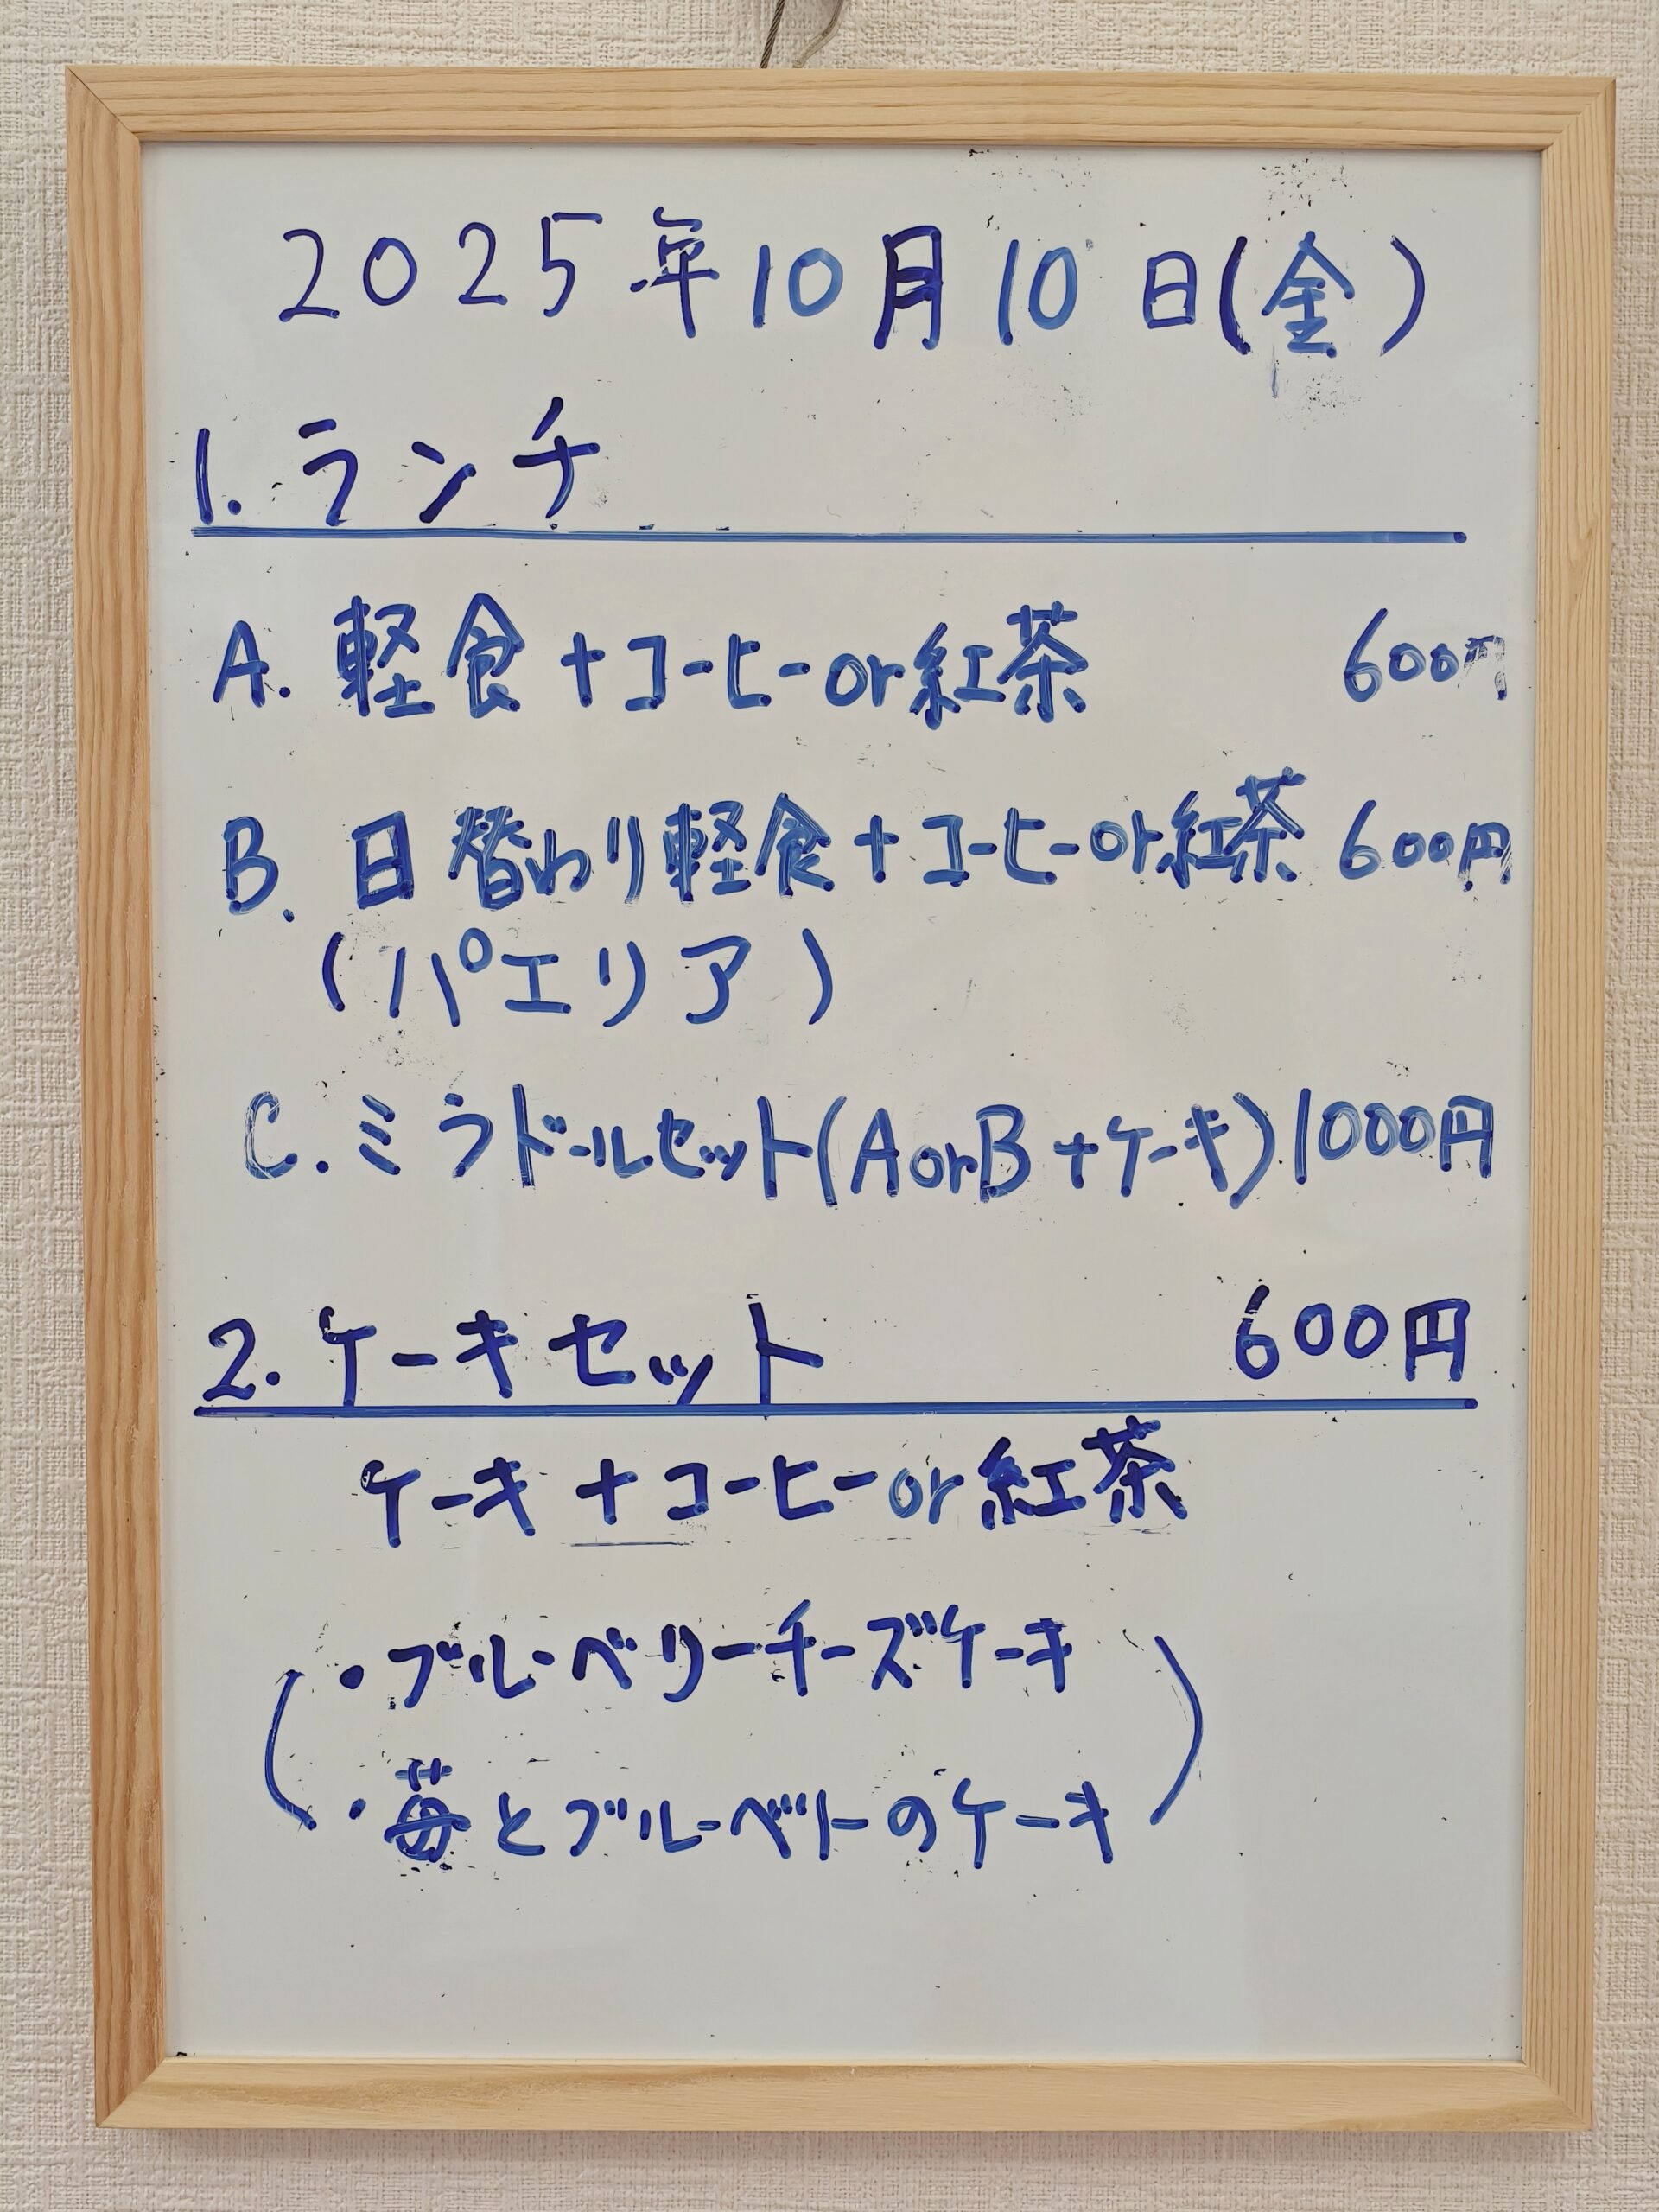 2025年10月10日(金)
1. ランチ
A. 軽食+コーヒーor紅茶 600円
B. 日替わり軽食+コーヒーor紅茶 600円
(パエリア)
C. ミラドールセット(AorB+ケーキ) 1000円
2. ケーキセット 600円
ケーキ+コーヒーor紅茶
・ブルーベリーチーズケーキ
・苺とブルーベリーのケーキ